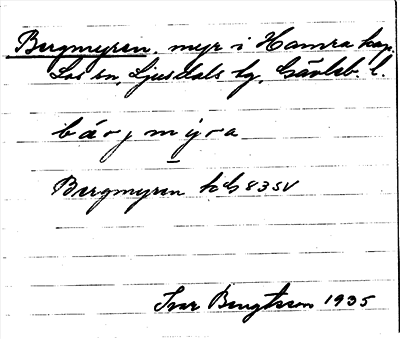 Bergmyren, myr i Hamra kap.
Los sn, Ljusdals tg, Gävleb. l.
bärjmýra
Bergmyren hG 835V
Ivar Bengtsson 1935